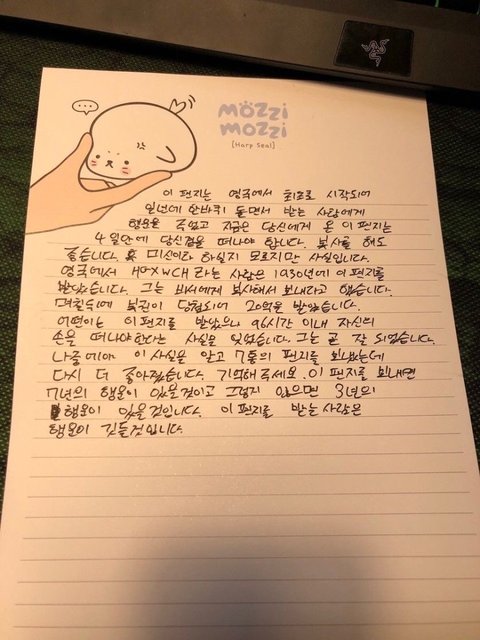 mozzi
mozzi
[Harp Seal]
이 편지는 영국에서 최초로 시작되어
일년에 한바퀴 돌면서 받는 사람에게
행운을 주었고 지금은 당신에게 온 이 편지는
4일안에 당신곁을 떠나야 합니다. 복사를 해도
좋습니다. 혹 미신이라 하실지 모르지만 사실입니다.
영국에서 HGXWCH 라는 사람은 1930년에 이 편지를
받았습니다. 그는 비서에게 복사해서 보내라고 했습니다.
며칠뒤에 복권이 당첨되어 20억을 받았습니다.
어떤이는 이 편지를 받았으나 96시간 이내 자신의
손을 떠나야한다는 사실을 잊었습니다. 그는 곧
나중에야 이 사실을 알고 7통의 편지를 보냈는데
다시 더 좋아졌습니다. 기억해주세요. 이 편지를 보내면
7년의 행운이 있을것이고 그렇지 않으면 3년의
행운이 있을것입니다. 이 편지를 받는사람은
행운이 깃들것입니다.